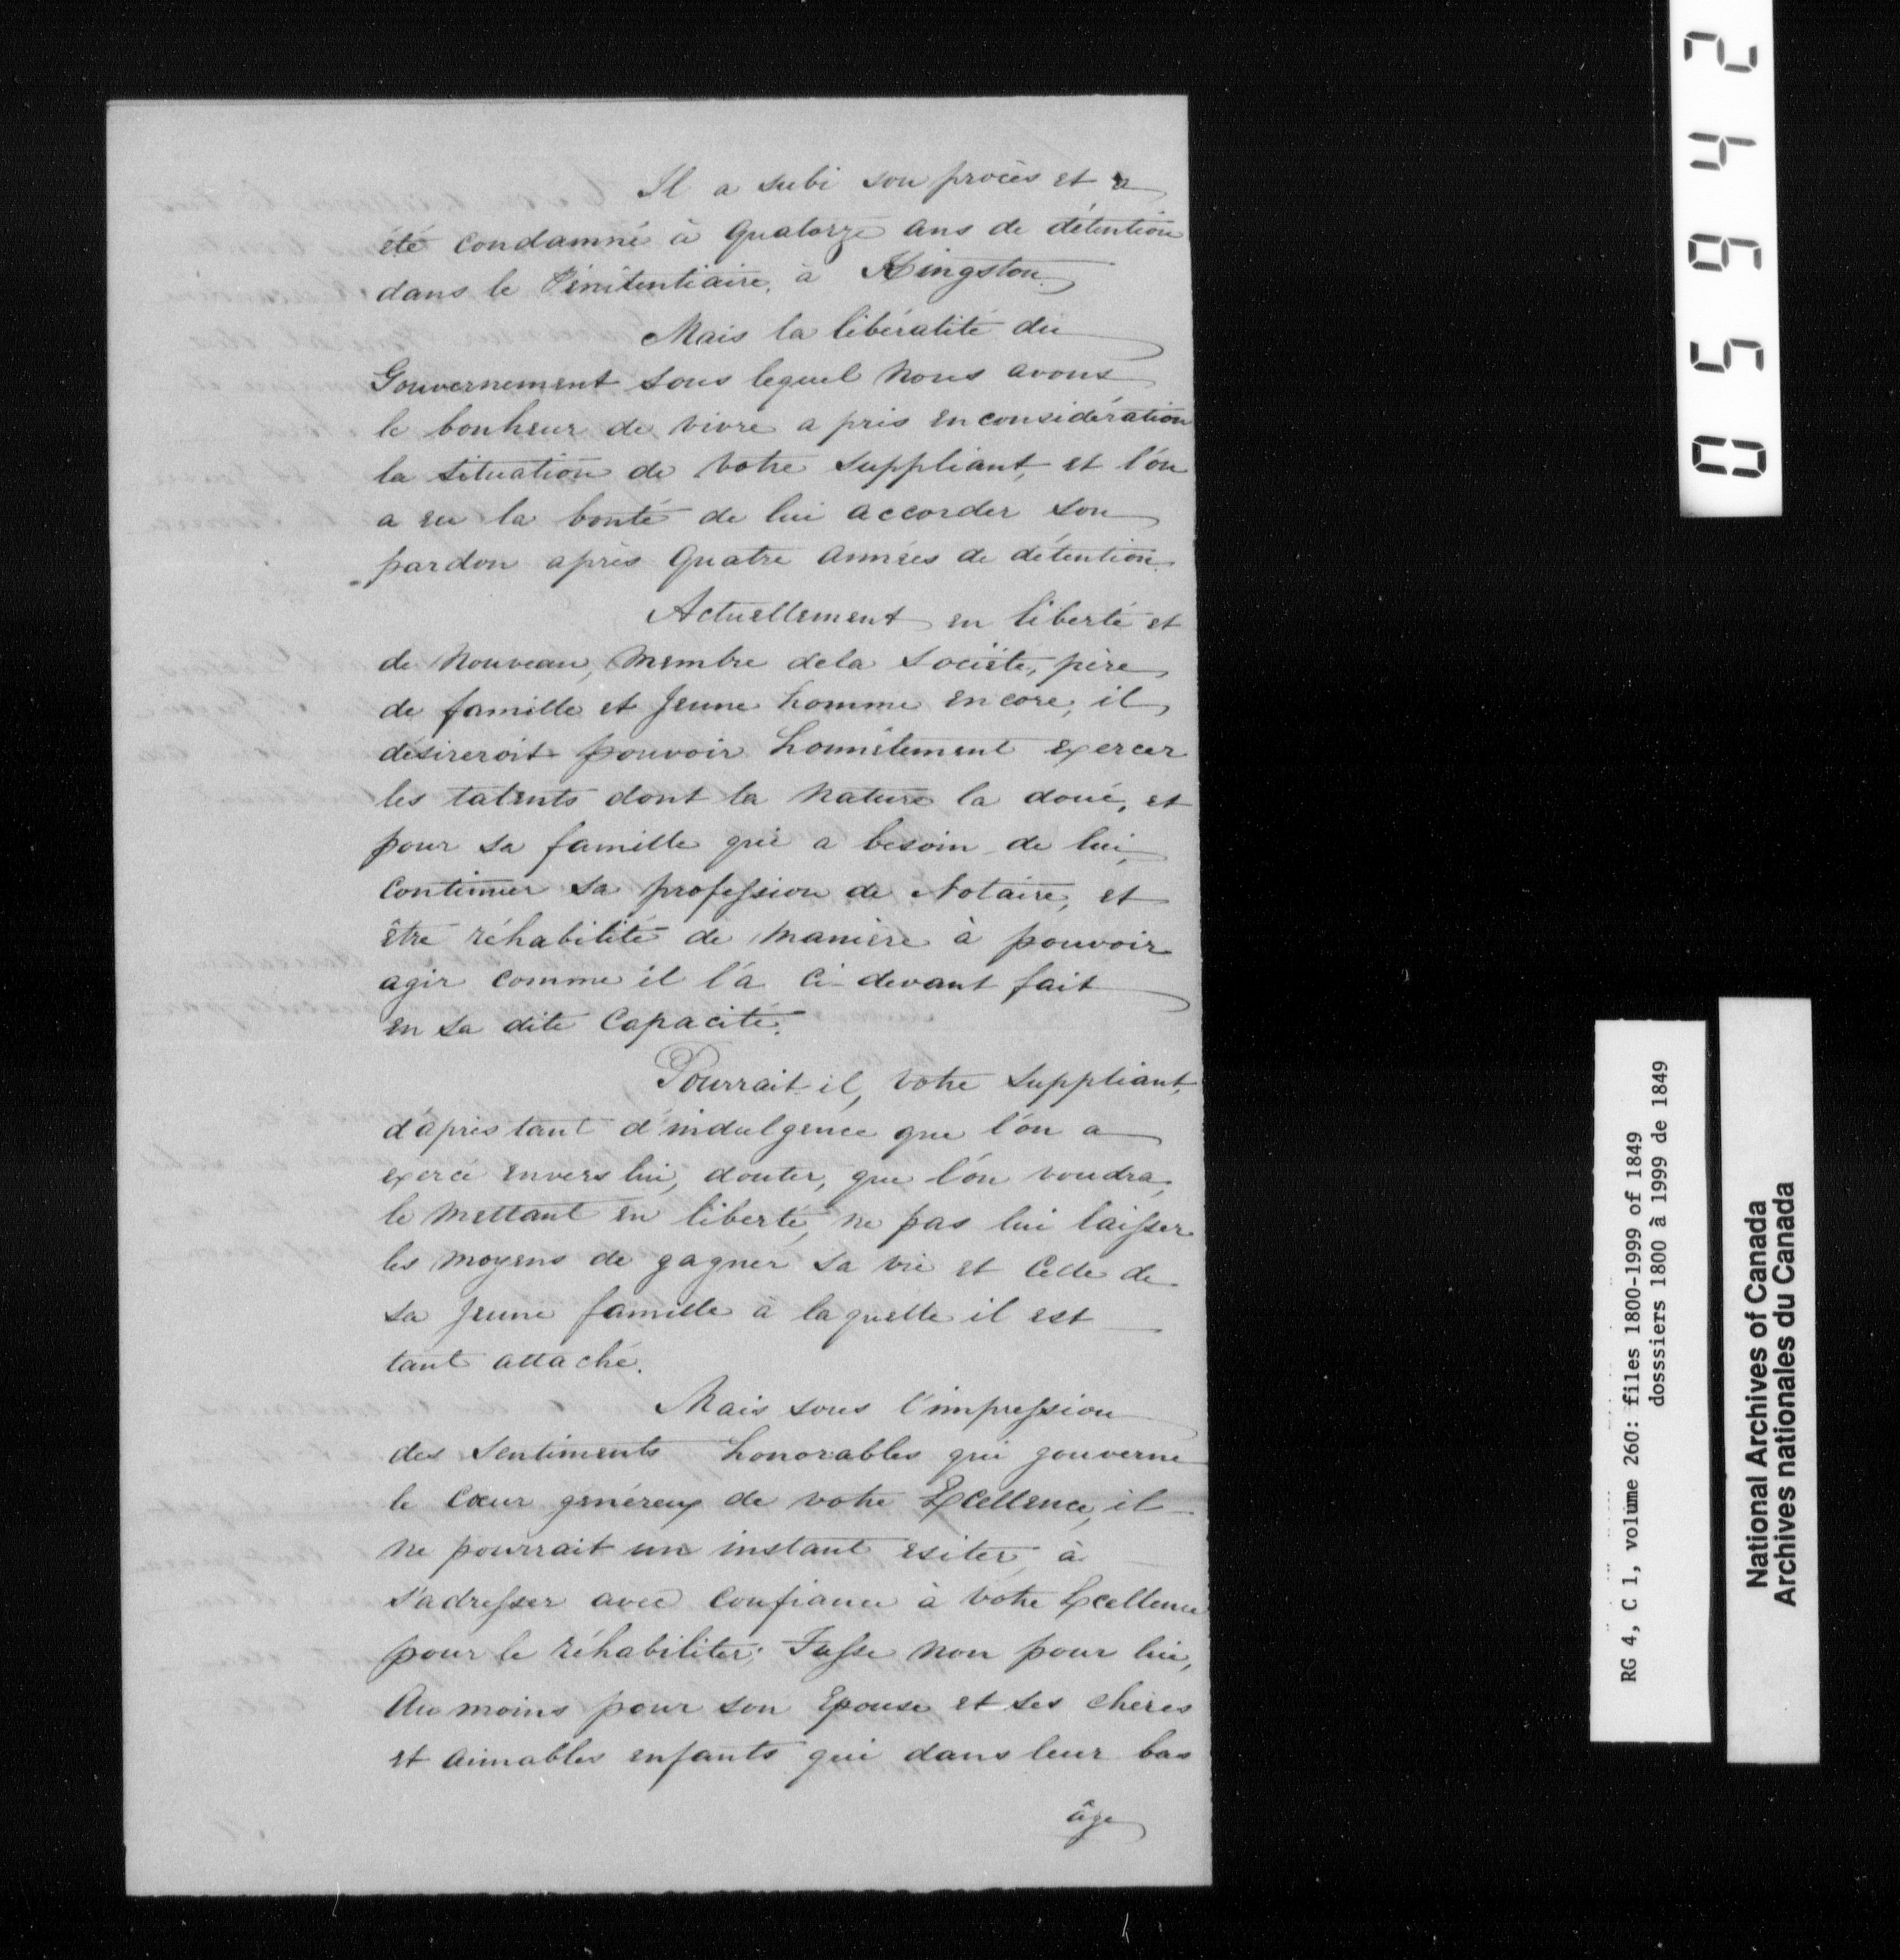 Il a subi son procès et a
été condamné à Quatorze ans de détention
dans le Pénitentiaire, à Kingston.
Mais la libéralité du
Gouvernement sous lequel nous avons
le bonheur de vivre a pris en considération
la situation de votre suppliant, et l'on
a eu la bonté de lui accorder son
pardon après Quatre années de détention.
Actuellement en liberté et
de nouveau, membre dela Société, père
de famille et Jeune homme encore, il
désireroit pouvoir honnêtement exercer
les talents dont la nature la doué, et
pour sa famille qui a besoin de lui,
continuer sa profession de Notaire, et
être réhabilité de manière à pouvoir
agir comme il l'a ci-devant fait
en sa dite Capacité.
Pourrait il, votre suppliant,
d'après tant d'indulgence que l'on a
exercé envers lui, douter, que l'on voudra,
le mettant en liberté, ne pas lui laisser
les moyens de gagner sa vie et celle de
sa Jeune famille à laquelle il est
tant attaché.
Mais sous l'impression
des sentiments honorables qui gouverne
le Cœur généreux de votre Excellence, il
ne pourrait un instant esiter, à
s'adresser avec confiance à votre Excellence
pour le réhabiliter; Fusse non pour lui,
Au moins pour son Epouse et ses chères
et aimables enfants qui dans leur bas
âge
05942
RG 4, C 1, volume 260: files 1800-1999 of 1849
dosssiers 1800 à 1999 de 1849
National Archives of Canada
Archives nationales du Canada